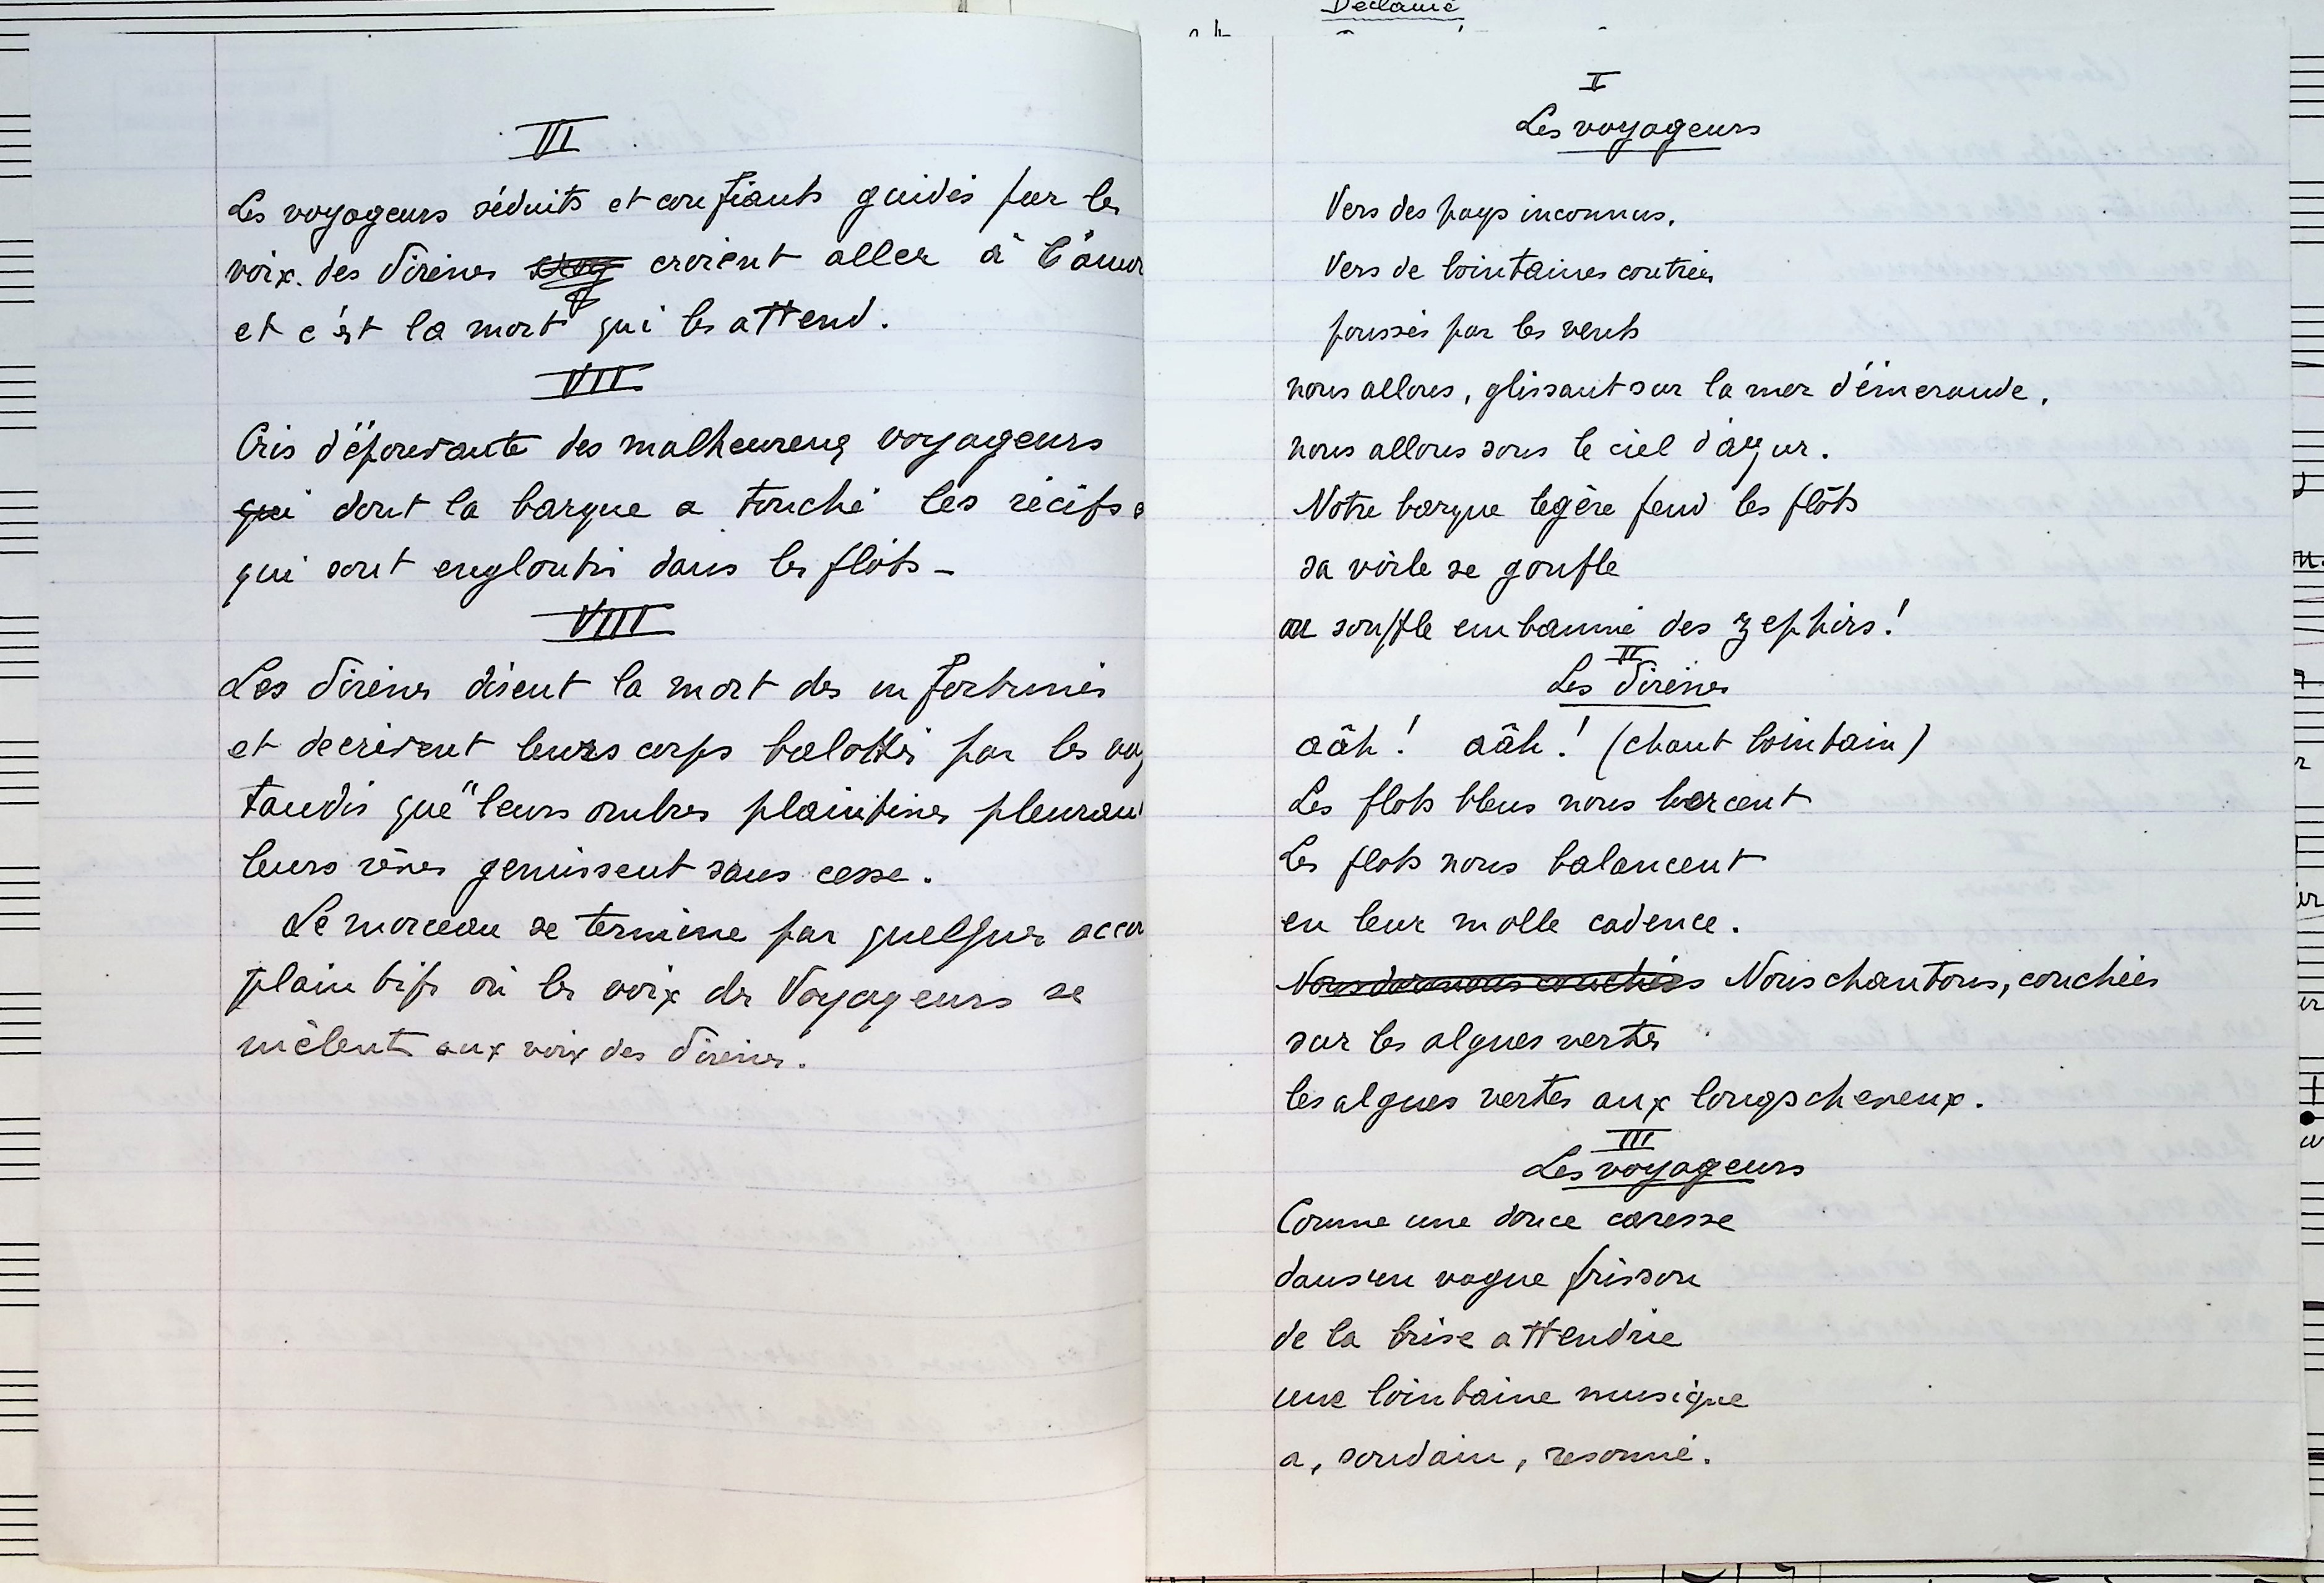 VI
Les voyageurs séduits et confiants guidés par les
voix des Sirènes croient aller à l'amour
et c'est la mort qui les attend.
VII
Cris d'épouvante des malheureux voyageurs
qui dont la barque a touché les récifs
qui sont engloutis dans les flots -
VIII
Les Sirènes disent la mort des infortunés
et decrivent leurs corps balottés par les
tandis que "leurs ombres plaintives pleurant
leurs rêves gemissent sans cesse.
Le morceau se termine par quelques
plaintifs où les voix des Voyageurs se
mêlent aux voix des Sirènes.
Déclamé
I
Les voyageurs
Vers des pays inconnus,
Vers de lointaines contrées
poussés par les vents
nous allons, glissant sur la mer d'émeraude,
nous allons sous le ciel d'azur.
Notre barque legère fend les flots
sa voile se gonfle
au souffle embaumé des zephirs!
II
Les Sirènes
aâh! aâh! (chant lointain)
Les flots bleus nous bercent
Les flots nous balancent
en leur molle cadence.
Nous dormons couchées Nous chantons, couchées
sur les algues vertes
les algues vertes aux longs cheveux.
III
Les voyageurs
Comme une douce caresse
dans un vague frisson
de la brise attendrie
une lointaine musique
a, soudain, resonné.